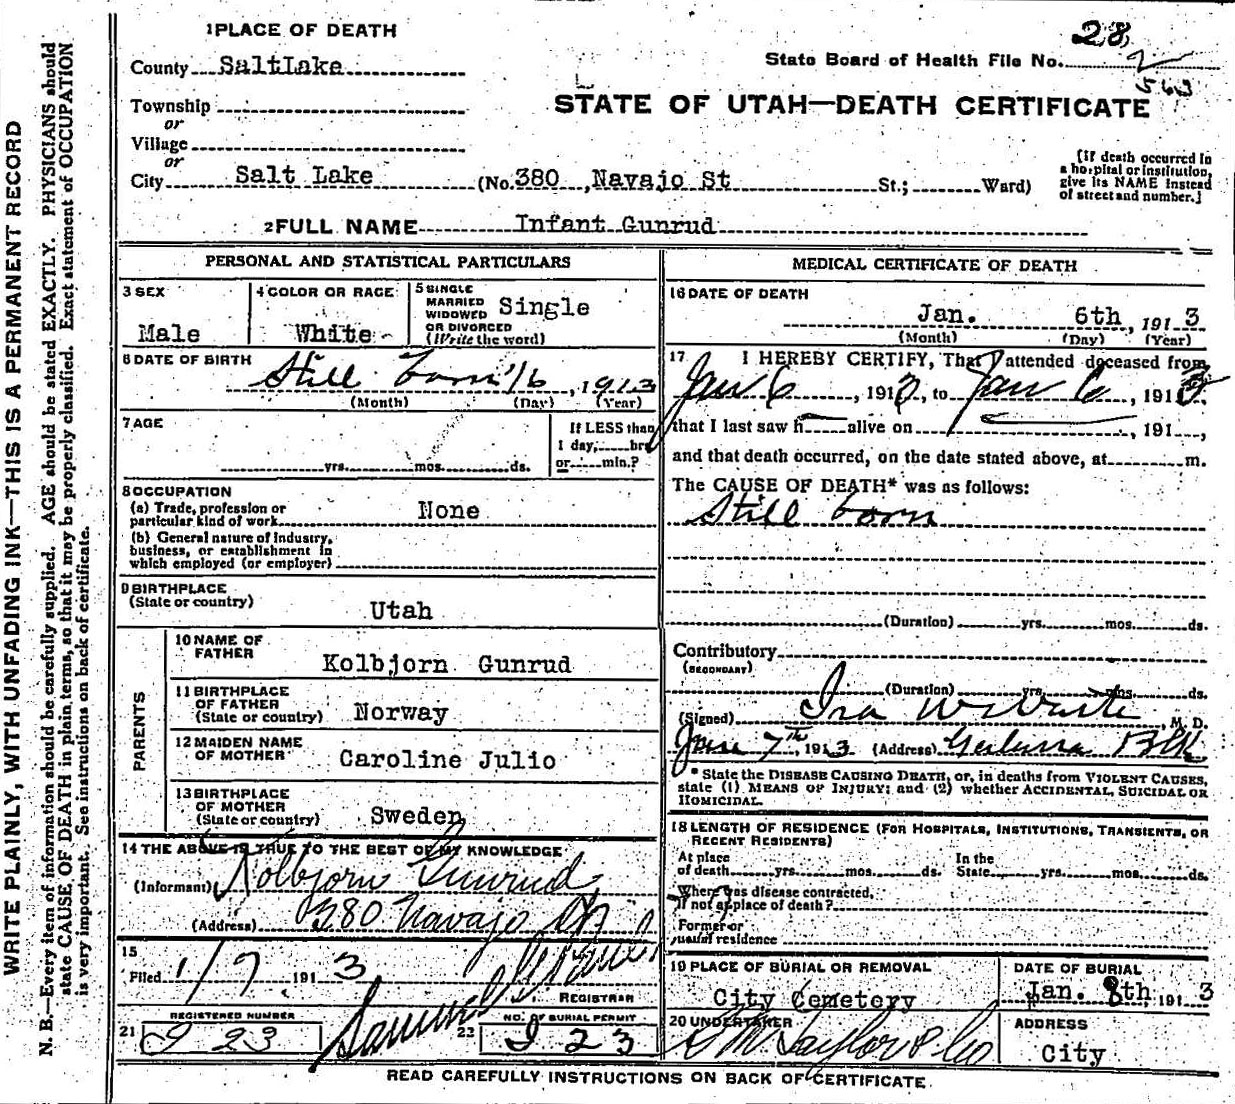 WRITE PLAINLY, WITH UNFADING INK—THIS IS A PERMANENT RECORD
N. B.—Every item of information should be carefully supplied. AGE should be stated EXACTLY. PHYSICIANS should
state CAUSE OF DEATH in plain terms, so that it may be properly classified. Exact statement of OCCUPATION
is very important. See instructions on back of certificate.
1 PLACE OF DEATH
County SaltLake
Township
or
Village
or
City Salt Lake (No. 380, Navajo St St.; Ward)
State Board of Health File No. 28
2
563
STATE OF UTAH—DEATH CERTIFICATE
[If death occurred in
a hospital or institution,
give its NAME instead
of street and number.]
2 FULL NAME Infant Gunrud
PERSONAL AND STATISTICAL PARTICULARS
3 SEX
Male
4 COLOR OR RACE
White
5 SINGLE
MARRIED
WIDOWED
OR DIVORCED
(Write the word)
Single
6 DATE OF BIRTH
Still born 1/6, 1913
(Month) (Day) (Year)
7 AGE
yrs. mos. ds.
If LESS than
1 day, hrs
or min.?
8 OCCUPATION
(a) Trade, profession or
particular kind of work None
(b) General nature of industry,
business, or establishment in
which employed (or employer)
9 BIRTHPLACE
(State or country)
Utah
PARENTS
10 NAME OF
FATHER
Kolbjorn Gunrud
11 BIRTHPLACE
OF FATHER
(State or country) Norway
12 MAIDEN NAME
OF MOTHER
Caroline Julio
13 BIRTHPLACE
OF MOTHER
(State or country) Sweden
14 THE ABOVE IS TRUE TO THE BEST OF MY KNOWLEDGE
(Informant) Kolbjorn Gunrud
(Address) 380 Navajo St
15
Filed 1/7 1913
REGISTRAR
21 REGISTERED NUMBER
J 23
22 NO. OF BURIAL PERMIT
J 23
MEDICAL CERTIFICATE OF DEATH
16 DATE OF DEATH
Jan. 6th, 1913
(Month) (Day) (Year)
17 I HEREBY CERTIFY, That I attended deceased from
Jan 6, 1913, to Jan 6, 1913.
that I last saw h alive on , 191 ,
and that death occurred, on the date stated above, at m.
The CAUSE OF DEATH* was as follows:
Still born
(Duration) yrs. mos. ds.
Contributory
(SECONDARY)
(Duration) yrs. mos. ds.
(Signed) Ira M. D.
7th, 1913 (Address) Blk
* State the DISEASE CAUSING DEATH, or, in deaths from VIOLENT CAUSES,
state (1) MEANS OF INJURY; and (2) whether ACCIDENTAL, SUICIDAL OR
HOMICIDAL.
18 LENGTH OF RESIDENCE (FOR HOSPITALS, INSTITUTIONS, TRANSIENTS, OR
RECENT RESIDENTS)
At place
of death yrs. mos. ds.
In the
State yrs. mos. ds.
Where was disease contracted,
if not at place of death?
Former or
usual residence
19 PLACE OF BURIAL OR REMOVAL
City Cemetery
DATE OF BURIAL
Jan. 8th 1913
20 UNDERTAKER
Taylor & Co
ADDRESS
City
READ CAREFULLY INSTRUCTIONS ON BACK OF CERTIFICATE.